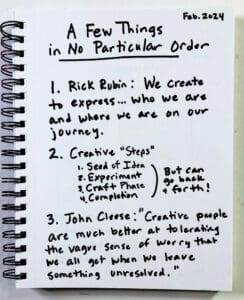 Feb. 2024
A Few Things
in No Particular Order
1. Rick Rubin: We create
to express... who we are
and where we are on our
journey.
2. Creative "Steps"
1. Seed of Idea
2. Experiment
3. Craft Phase
4. Completion
But can
go back
+ forth!
3. John Cleese: "Creative people
are much better at tolerating
the vague sense of worry that
we all get when we leave
something unresolved."